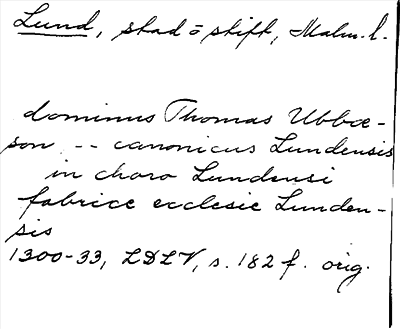 Lund, stad o stift, Malm. l.
dominus Thomas Ubbæ-
son -- canonicus Lundensis
in choro Lundensi
fabrice ecclesie Lunden-
sis
1300-33, LDLV, s. 182 f. orig.